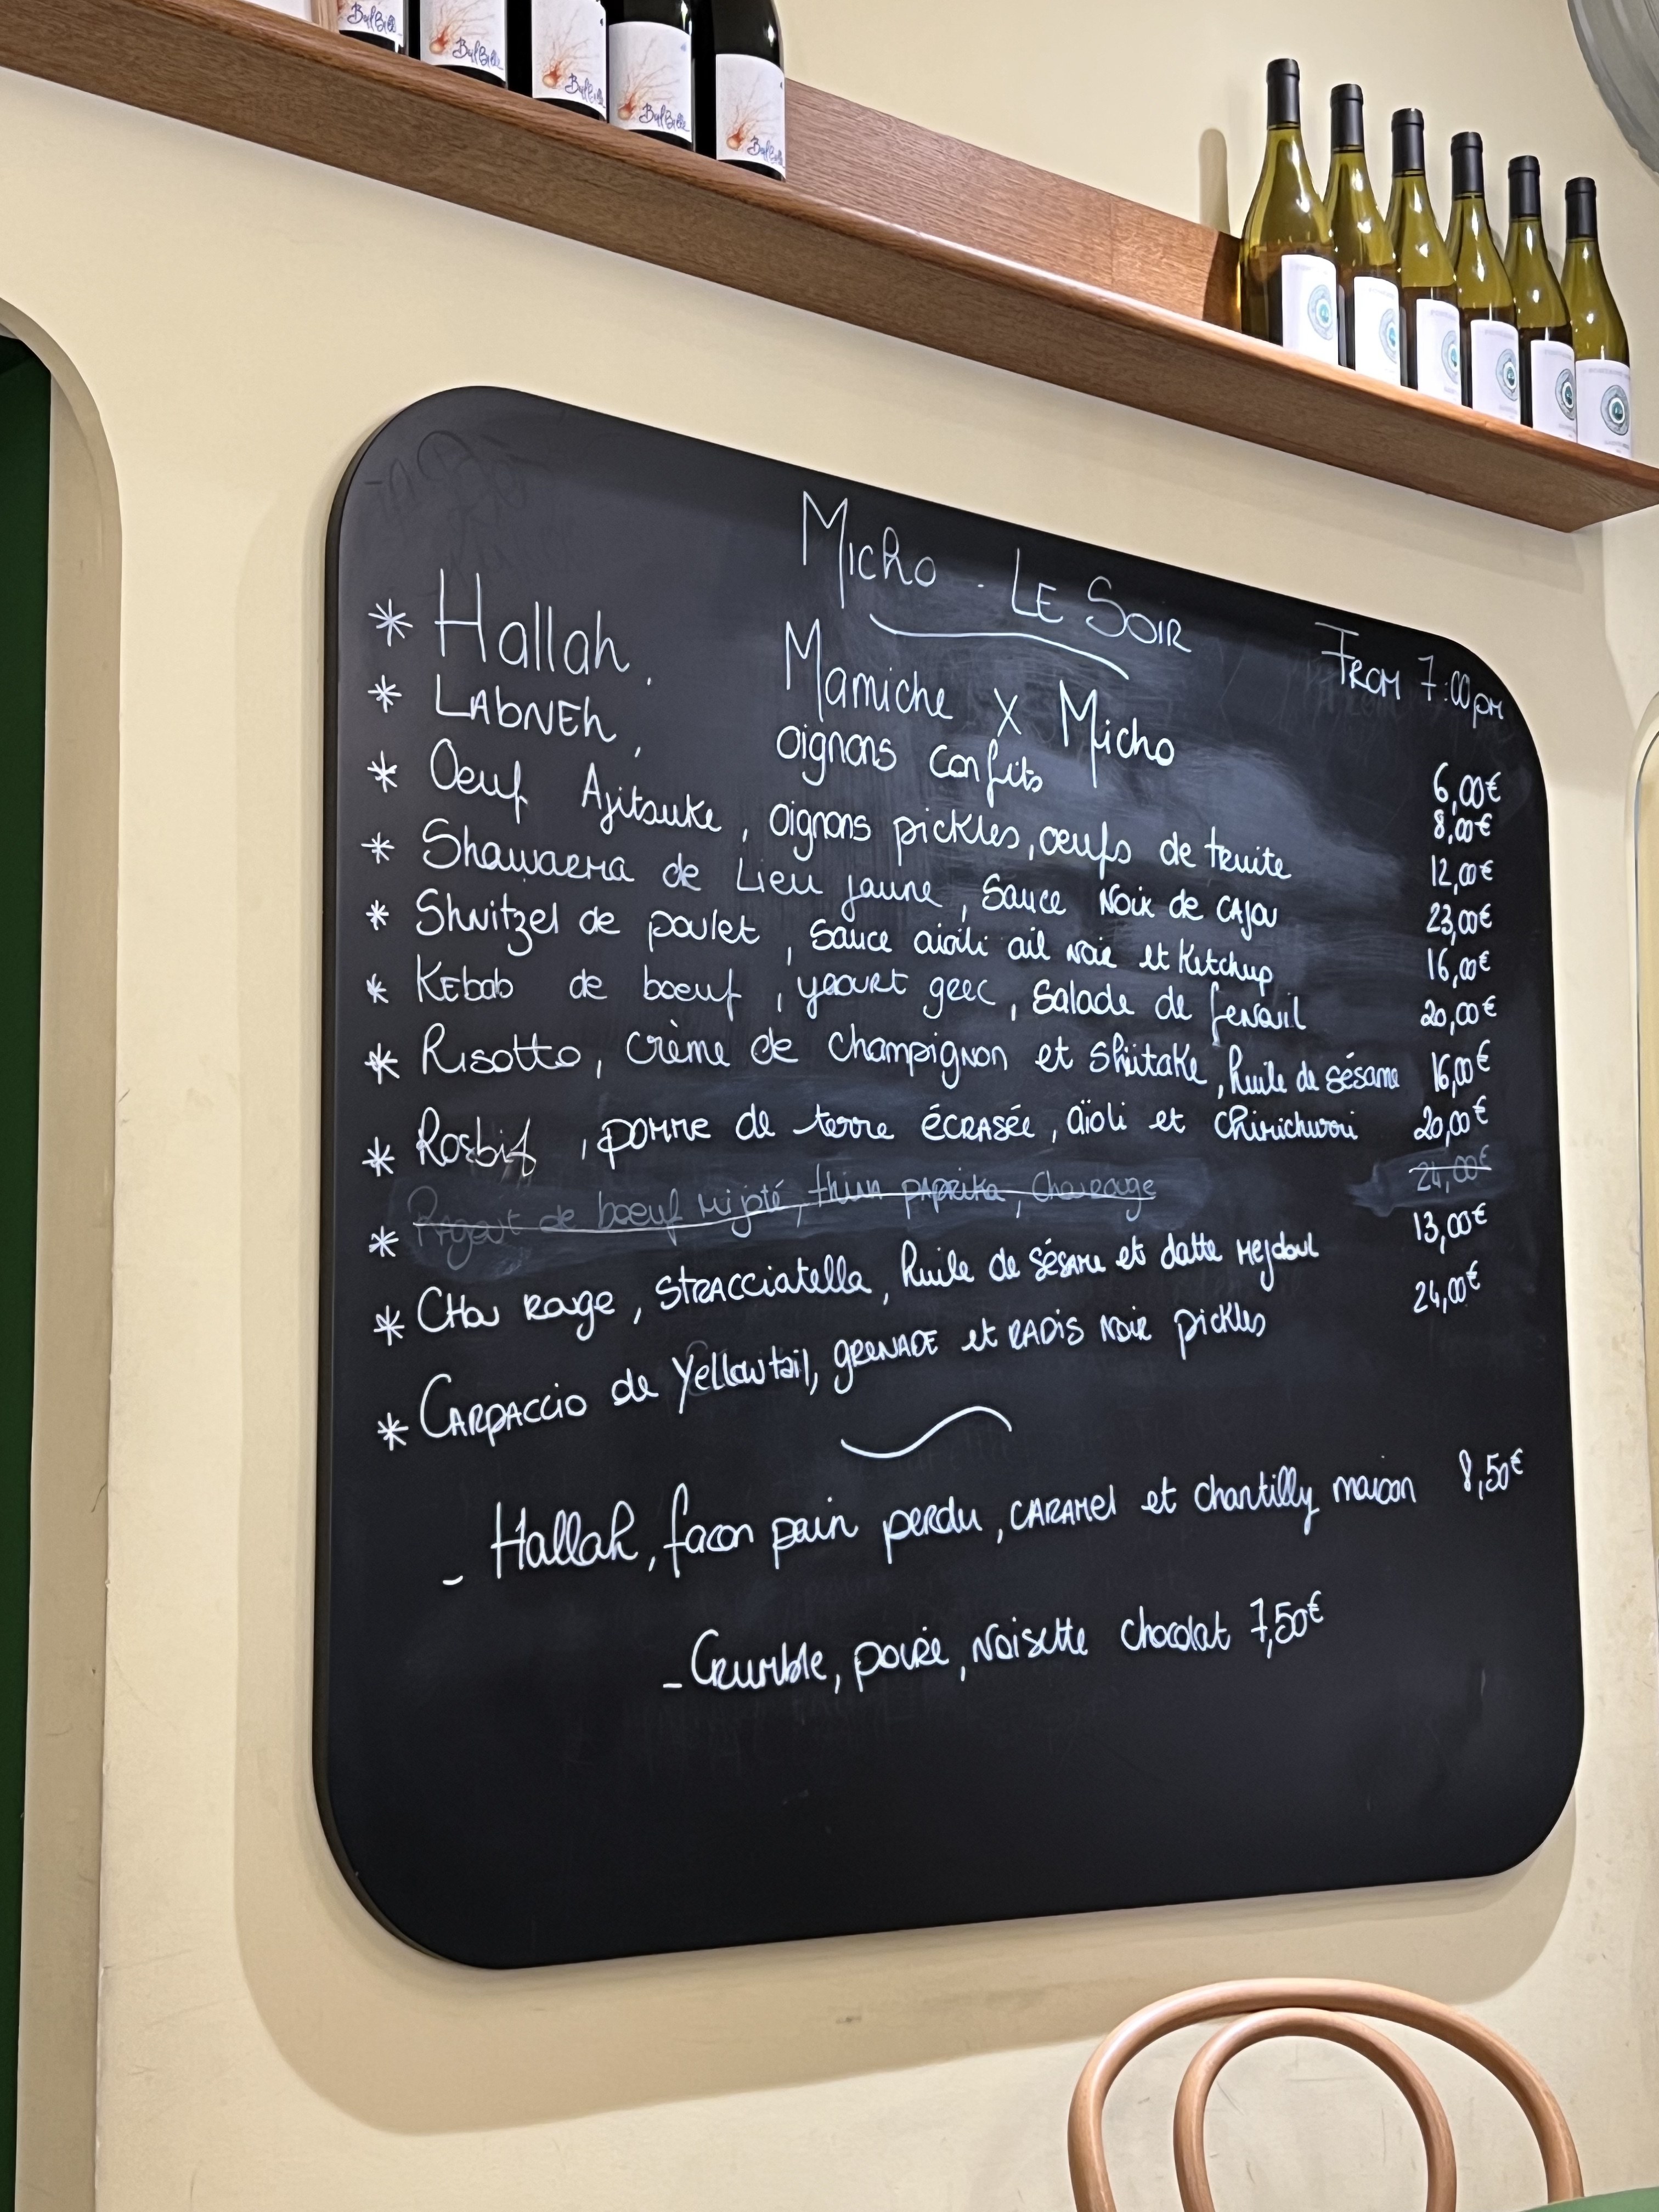 BulBille
BulBille
BulBille
BulBille
Micho - LE SOIR
FROM 7:00pm
* Hallah, Mamiche X Micho 6,00€
* LAbNEh, oignons confits 8,00€
* Oeuf Ajitsuke, oignons pickles, oeufs de truite 12,00€
* Shawarma de Lieu jaune, Sauce Noix de CAJOU 23,00€
* Shnitzel de poulet, sauce aioli ail noir et Ketchup 16,00€
* KEbab de boeuf, yaourt grec, salade de fenouil 20,00€
* Risotto, crème de champignon et shiitake, huile de sésame 16,00€
* Rosbif, pomme de terre écrasée, aïoli et chimichurri 20,00€
* Ragout de boeuf mijoté, thym paprika, chou rouge 24,00€
* CHou Rouge, STRACCiatella, huile de sésame et datte mejdoul 13,00€
* CARPACCio de Yellowtail, grenade et RADis Noir pickles 24,00€
_ Hallah, facon pain perdu, CARAMEL et chantilly maison 8,50€
_ Crumble, poire, Noisette chocolat 7,50€